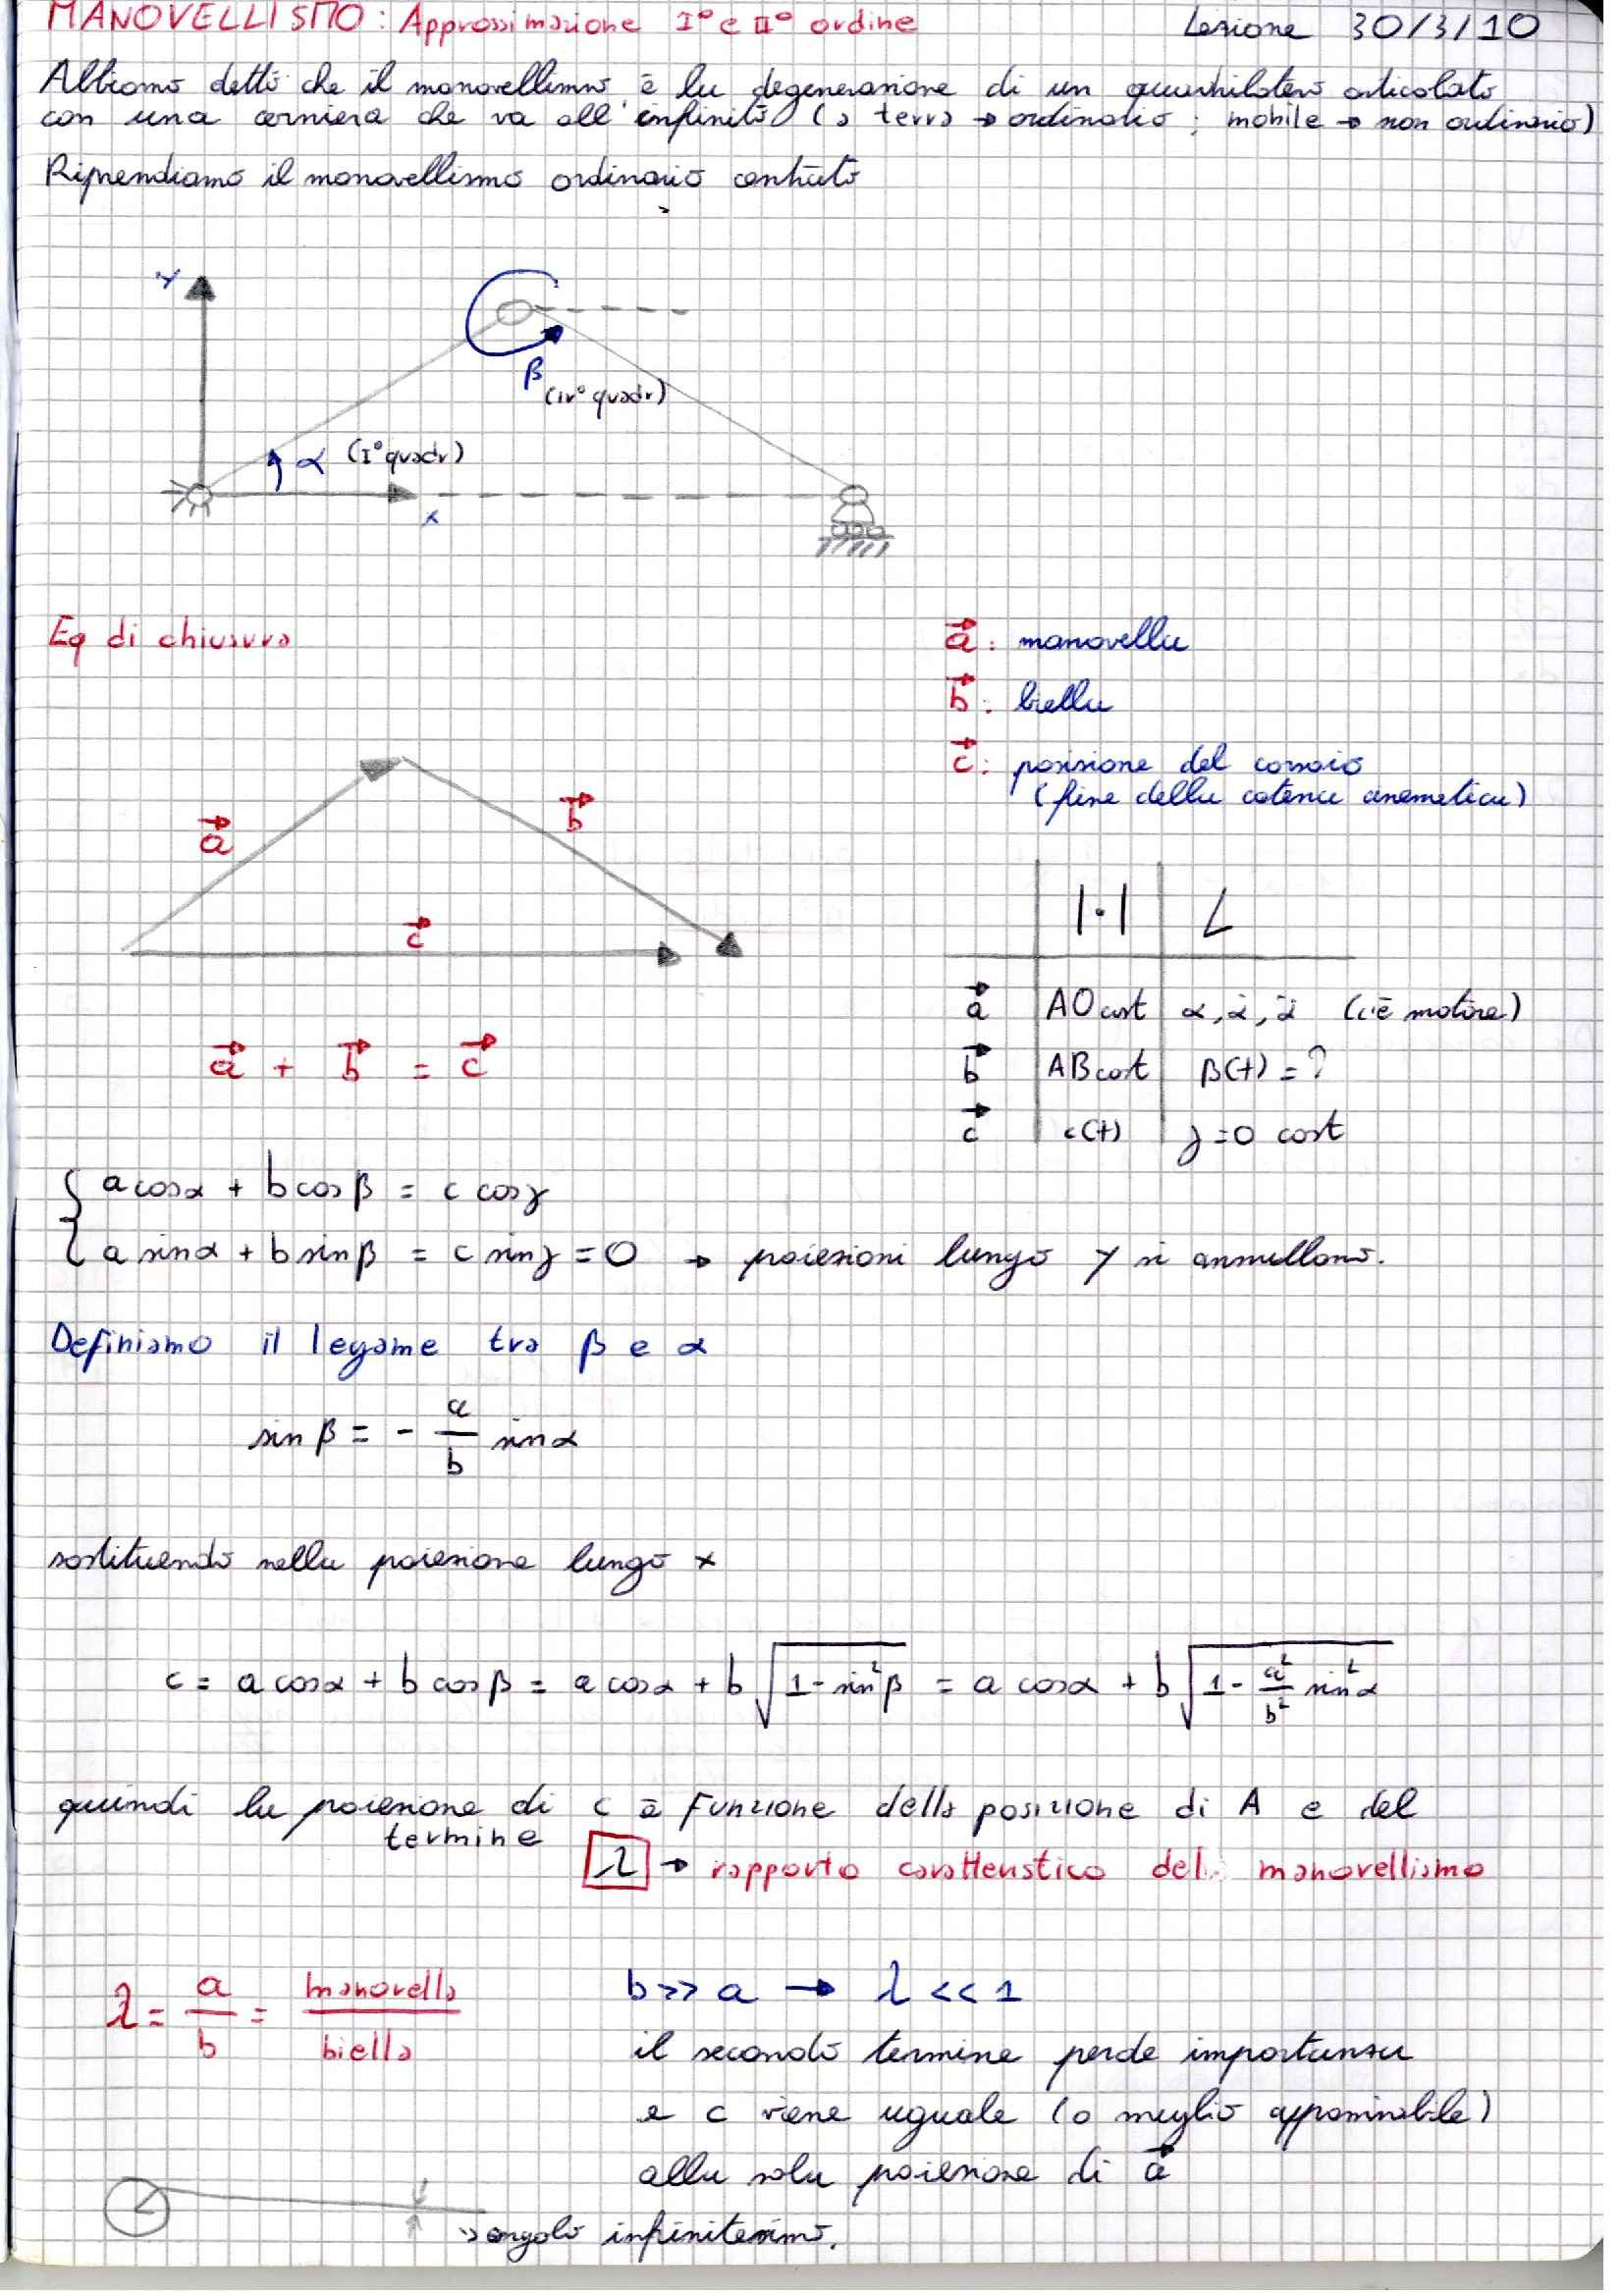 MANOVELLISMO: Approssimazione I° e II° ordine
Lezione 30/3/10
Abbiamo detto che il manovellismo è la degenerazione di un quadrilatero articolato
con una cerniera che va all'infinito (a terra → ordinario; mobile → non ordinario)
Riprendiamo il manovellismo ordinario centrato
y
β
(IV° quadr)
α (I° quadr)
x
Eq di chiusura
a: manovella
b: biella
c: posizione del corsoio
(fine della catena cinematica)
a
b
c
|·| ∠
a AO cost α, α̇, α̈ (c'è motore)
b AB cost β(t) = ?
c c(t) γ=0 cost
a + b = c
{ a cosα + b cosβ = c cosγ
a sinα + b sinβ = c sinγ = 0 → proiezioni lungo y si annullano.
Definiamo il legame tra β e α
sin β = - a/b sinα
sostituendo nella proiezione lungo x
c = a cosα + b cosβ = a cosα + b √(1 - sin²β) = a cosα + b √(1 - a²/b² sin²α)
quindi la proiezione di c è funzione della posizione di A e del
termine
λ → rapporto caratteristico del manovellismo
λ = a/b = manovella/biella
b >> a → λ << 1
il secondo termine perde importanza
e c viene uguale (o meglio approssimabile)
alla sola proiezione di a
angolo infinitesimo.